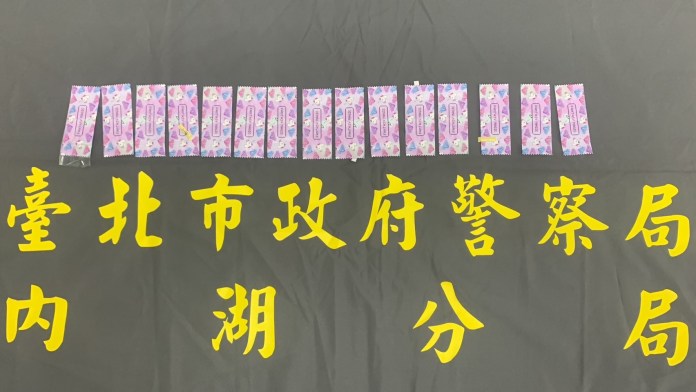 臺北市政府警察局
內湖分局